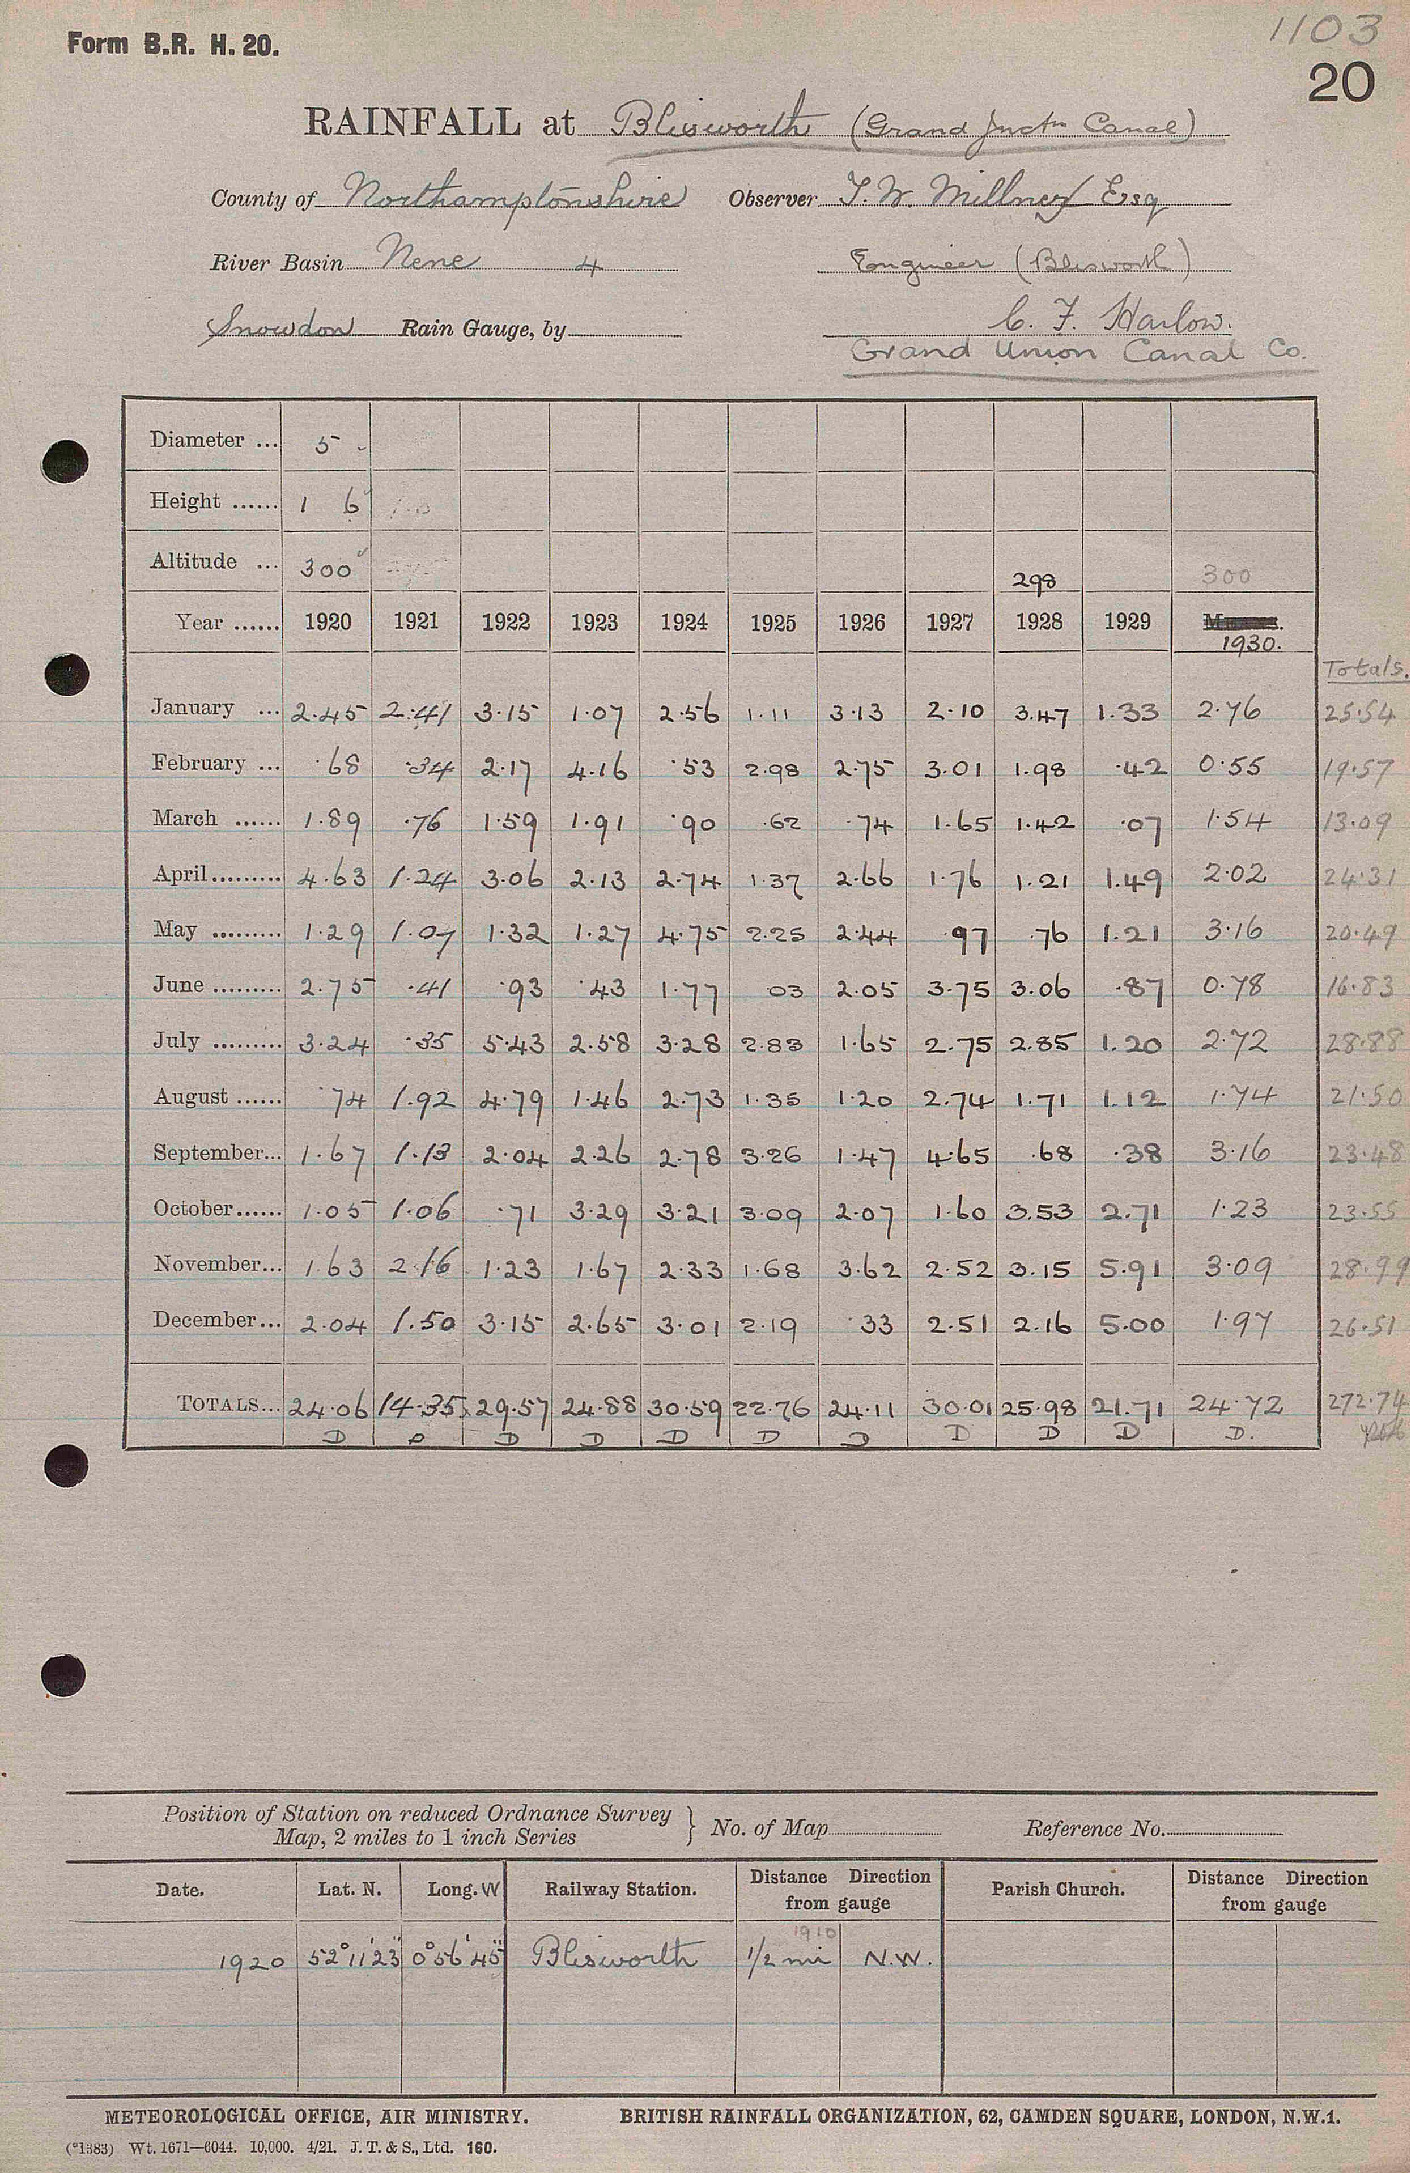 1103
Form B.R. H. 20.
20
RAINFALL at Blisworth (Grand Junctn Canal)
County of Northamptonshire Observer T. W. Millner Esq
River Basin Nene 4 Engineer (Blisworth)
Snowdon Rain Gauge, by C. F. Harlow.
Grand Union Canal Co.
Diameter ... 5
Height ...... 1 6
Altitude ... 300 298 300
Year ...... 1920 1921 1922 1923 1924 1925 1926 1927 1928 1929 1930.
Totals.
January ... 2.45 2.41 3.15 1.07 2.56 1.11 3.13 2.10 3.47 1.33 2.76 25.54
February ... .68 .34 2.17 4.16 .53 2.98 2.75 3.01 1.98 .42 0.55 19.57
March ...... 1.89 .76 1.59 1.91 .90 .62 .74 1.65 1.42 .07 1.54 13.09
April......... 4.63 1.24 3.06 2.13 2.74 1.37 2.66 1.76 1.21 1.49 2.02 24.31
May ......... 1.29 1.07 1.32 1.27 4.75 2.25 2.44 .97 .76 1.21 3.16 20.49
June ......... 2.75 .41 .93 .43 1.77 .03 2.05 3.75 3.06 .87 0.78 16.83
July ......... 3.24 .35 5.43 2.58 3.28 2.83 1.65 2.75 2.85 1.20 2.72 28.88
August ...... .74 1.92 4.79 1.46 2.73 1.35 1.20 2.74 1.71 1.12 1.74 21.50
September... 1.67 1.13 2.04 2.26 2.78 3.26 1.47 4.65 .68 .38 3.16 23.48
October...... 1.05 1.06 .71 3.29 3.21 3.09 2.07 1.60 3.53 2.71 1.23 23.55
November... 1.63 2.16 1.23 1.67 2.33 1.68 3.62 2.52 3.15 5.91 3.09 28.99
December... 2.04 1.50 3.15 2.65 3.01 2.19 .33 2.51 2.16 5.00 1.97 26.51
TOTALS... 24.06 14.35 29.57 24.88 30.59 22.76 24.11 30.01 25.98 21.71 24.72 272.74
D D D D D D D D D D D.
Position of Station on reduced Ordnance Survey
Map, 2 miles to 1 inch Series } No. of Map Reference No.
Date. Lat. N. Long. W Railway Station. Distance Direction from gauge Parish Church. Distance Direction from gauge
1910
1920 52°11'23" 0°56'45" Blisworth 1/2 mi N.W.
METEOROLOGICAL OFFICE, AIR MINISTRY. BRITISH RAINFALL ORGANIZATION, 62, CAMDEN SQUARE, LONDON, N.W.1.
(*1383) Wt. 1671—6044. 10,000. 4/21. J. T. & S., Ltd. 160.